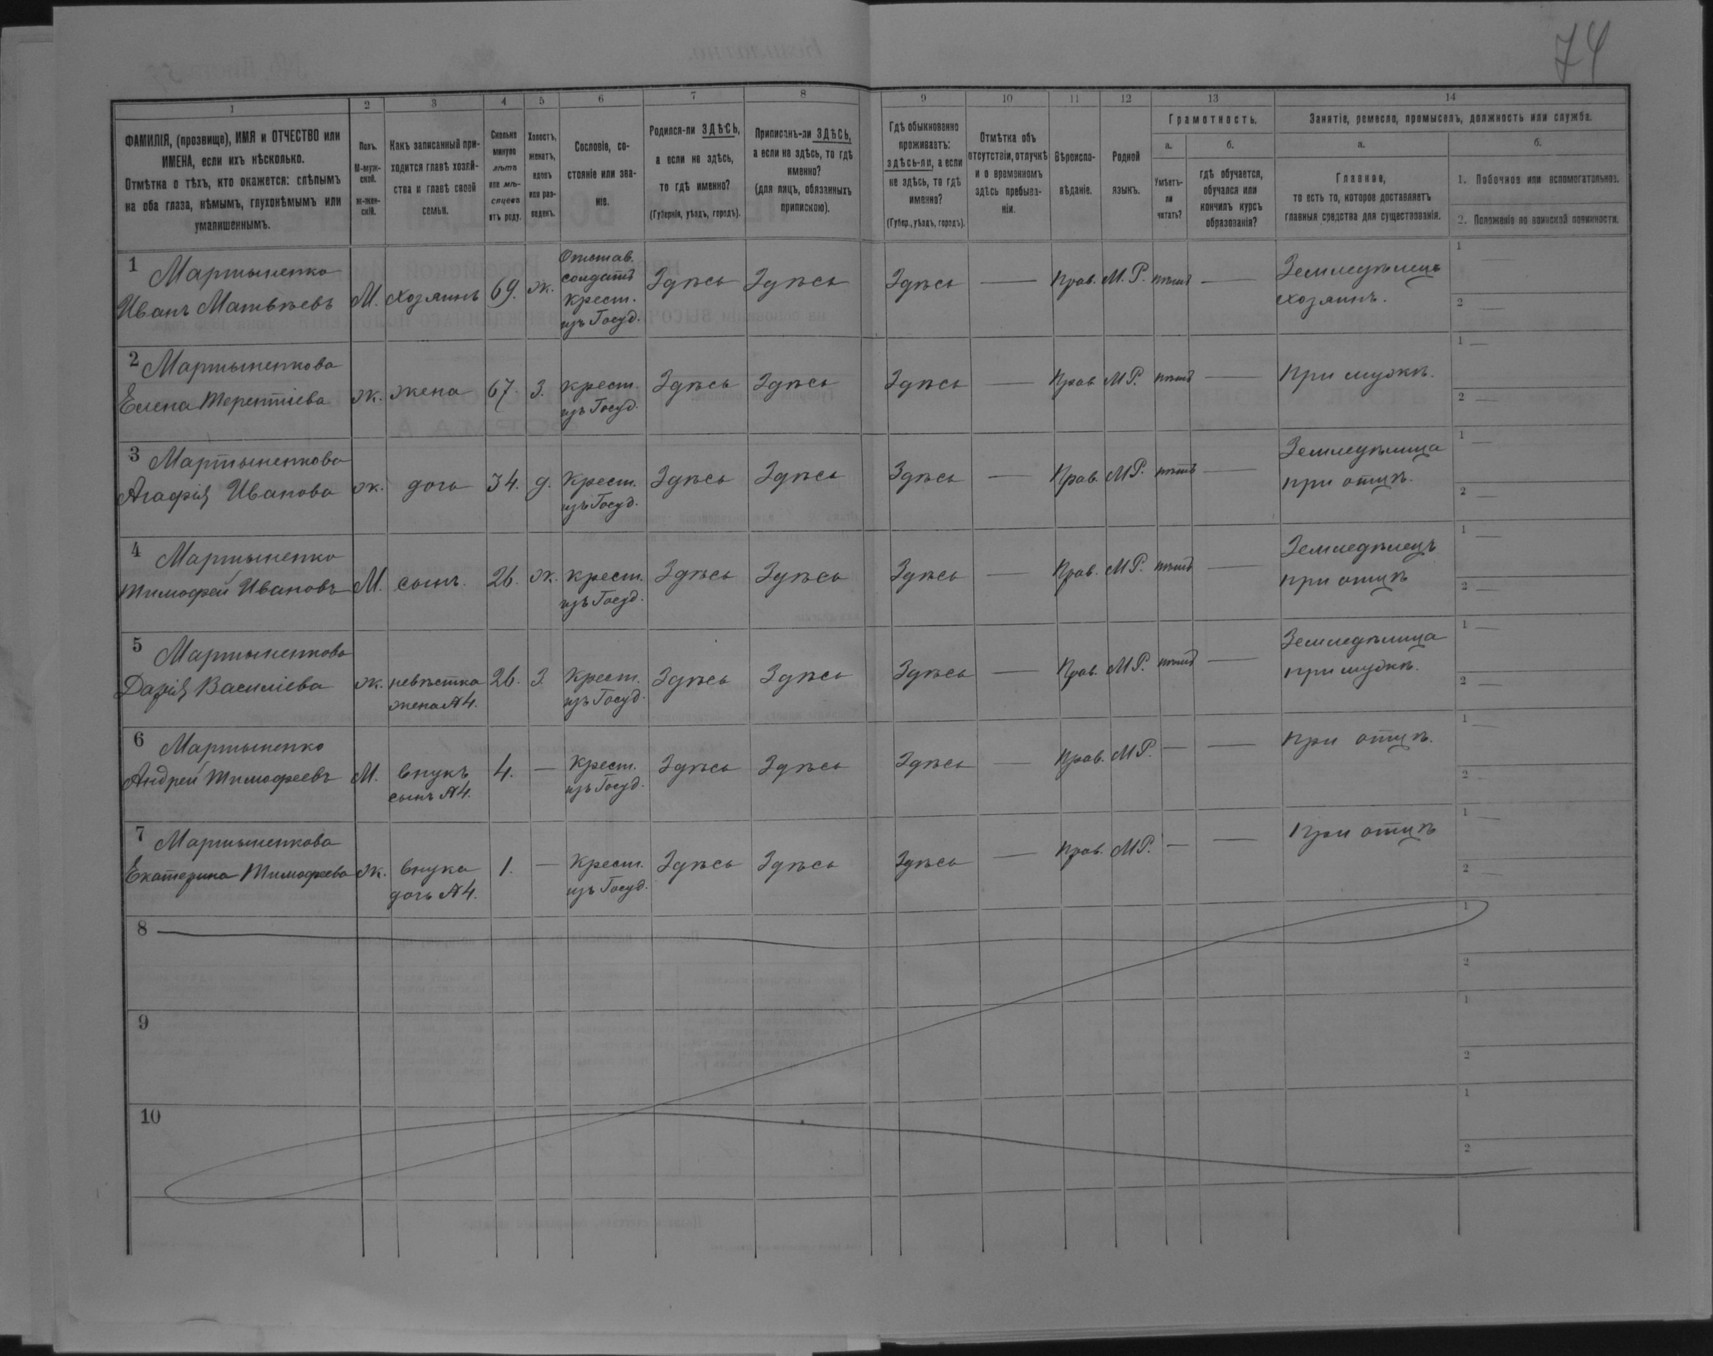 74
1 2 3 4 5 6 7 8 9 10 11 12 13 14
ФАМИЛІЯ, (прозвище), ИМЯ и ОТЧЕСТВО или
ИМЕНА, если ихъ нѣсколько.
Отмѣтка о тѣхъ, кто окажется: слѣпымъ
на оба глаза, нѣмымъ, глухонѣмымъ или
умалишеннымъ.
Полъ.
М-муж-
ской.
Ж-жен-
скій.
Какъ записанный при-
ходится главѣ хозяй-
ства и главѣ своей
семьи.
Сколько
минуло
лѣтъ
или мѣ-
сяцевъ
отъ роду.
Холостъ,
женатъ,
вдовъ
или раз-
веденъ.
Сословіе, со-
стояніе или зва-
ніе.
Родился-ли ЗДѢСЬ,
а если не здѣсь,
то гдѣ именно?
(Губернія, уѣздъ, городъ).
Приписанъ-ли ЗДѢСЬ,
а если не здѣсь, то гдѣ
именно?
(для лицъ, обязанныхъ
припискою).
Гдѣ обыкновенно
проживаетъ:
здѣсь-ли, а если
не здѣсь, то гдѣ
именно?
(Губер., уѣздъ, городъ).
Отмѣтка объ
отсутствіи, отлучкѣ
и о временномъ
здѣсь пребыва-
ніи.
Вѣроиспо-
вѣданіе.
Родной
языкъ.
Грамотность.
а.
Умѣетъ-
ли
читать?
б.
гдѣ обучается,
обучался или
кончилъ курсъ
образованія?
Занятіе, ремесло, промыселъ, должность или служба.
а.
Главное,
то есть то, которое доставляетъ
главныя средства для существованія.
б.
1. Побочное или вспомогательное.
2. Положеніе по воинской повинности.
1 Мартыненко
Иванъ Матвѣевъ М. хозяинъ 69. ж. Отстав. солдатъ крест. изъ Госуд. Здѣсь Здѣсь Здѣсь — Прав. М.Р. нѣтъ — Земледѣлецъ хозяинъ. 1 — 2 —
2 Мартыненкова
Елена Терентіева ж. жена 67 З. крест. изъ Госуд. Здѣсь Здѣсь Здѣсь — Прав М.Р. нѣтъ — При мужѣ. 1 — 2 —
3 Мартыненкова
Агафія Иванова ж. дочь 34. д. Крест. изъ Госуд. Здѣсь Здѣсь Здѣсь — Прав. М.Р. нѣтъ — Земледѣлица при отцѣ. 1 — 2 —
4 Мартыненко
Тимофей Ивановъ М. сынъ. 26. ж. крест. изъ Госуд. Здѣсь Здѣсь Здѣсь — Прав. М.Р. нѣтъ — Земледѣлецъ при отцѣ 1 — 2 —
5 Мартыненкова
Дарія Василіева ж. невѣстка жена №4. 26. З. Крест. изъ Госуд. Здѣсь Здѣсь Здѣсь — Прав. М.Р. нѣтъ — Земледѣлица при мужѣ. 1 — 2 —
6 Мартыненко
Андрей Тимофеевъ М. внукъ сынъ №4. 4. — Крест. изъ Госуд. Здѣсь Здѣсь Здѣсь — Прав. М.Р. — — При отцѣ. 1 — 2 —
7 Мартыненкова
Екатерина Тимофеева ж. внука дочь №4. 1. — Крест. изъ Госуд. Здѣсь Здѣсь Здѣсь — Прав. М.Р. — — При отцѣ 1 — 2 —
8 1 2
9 1 2
10 1 2